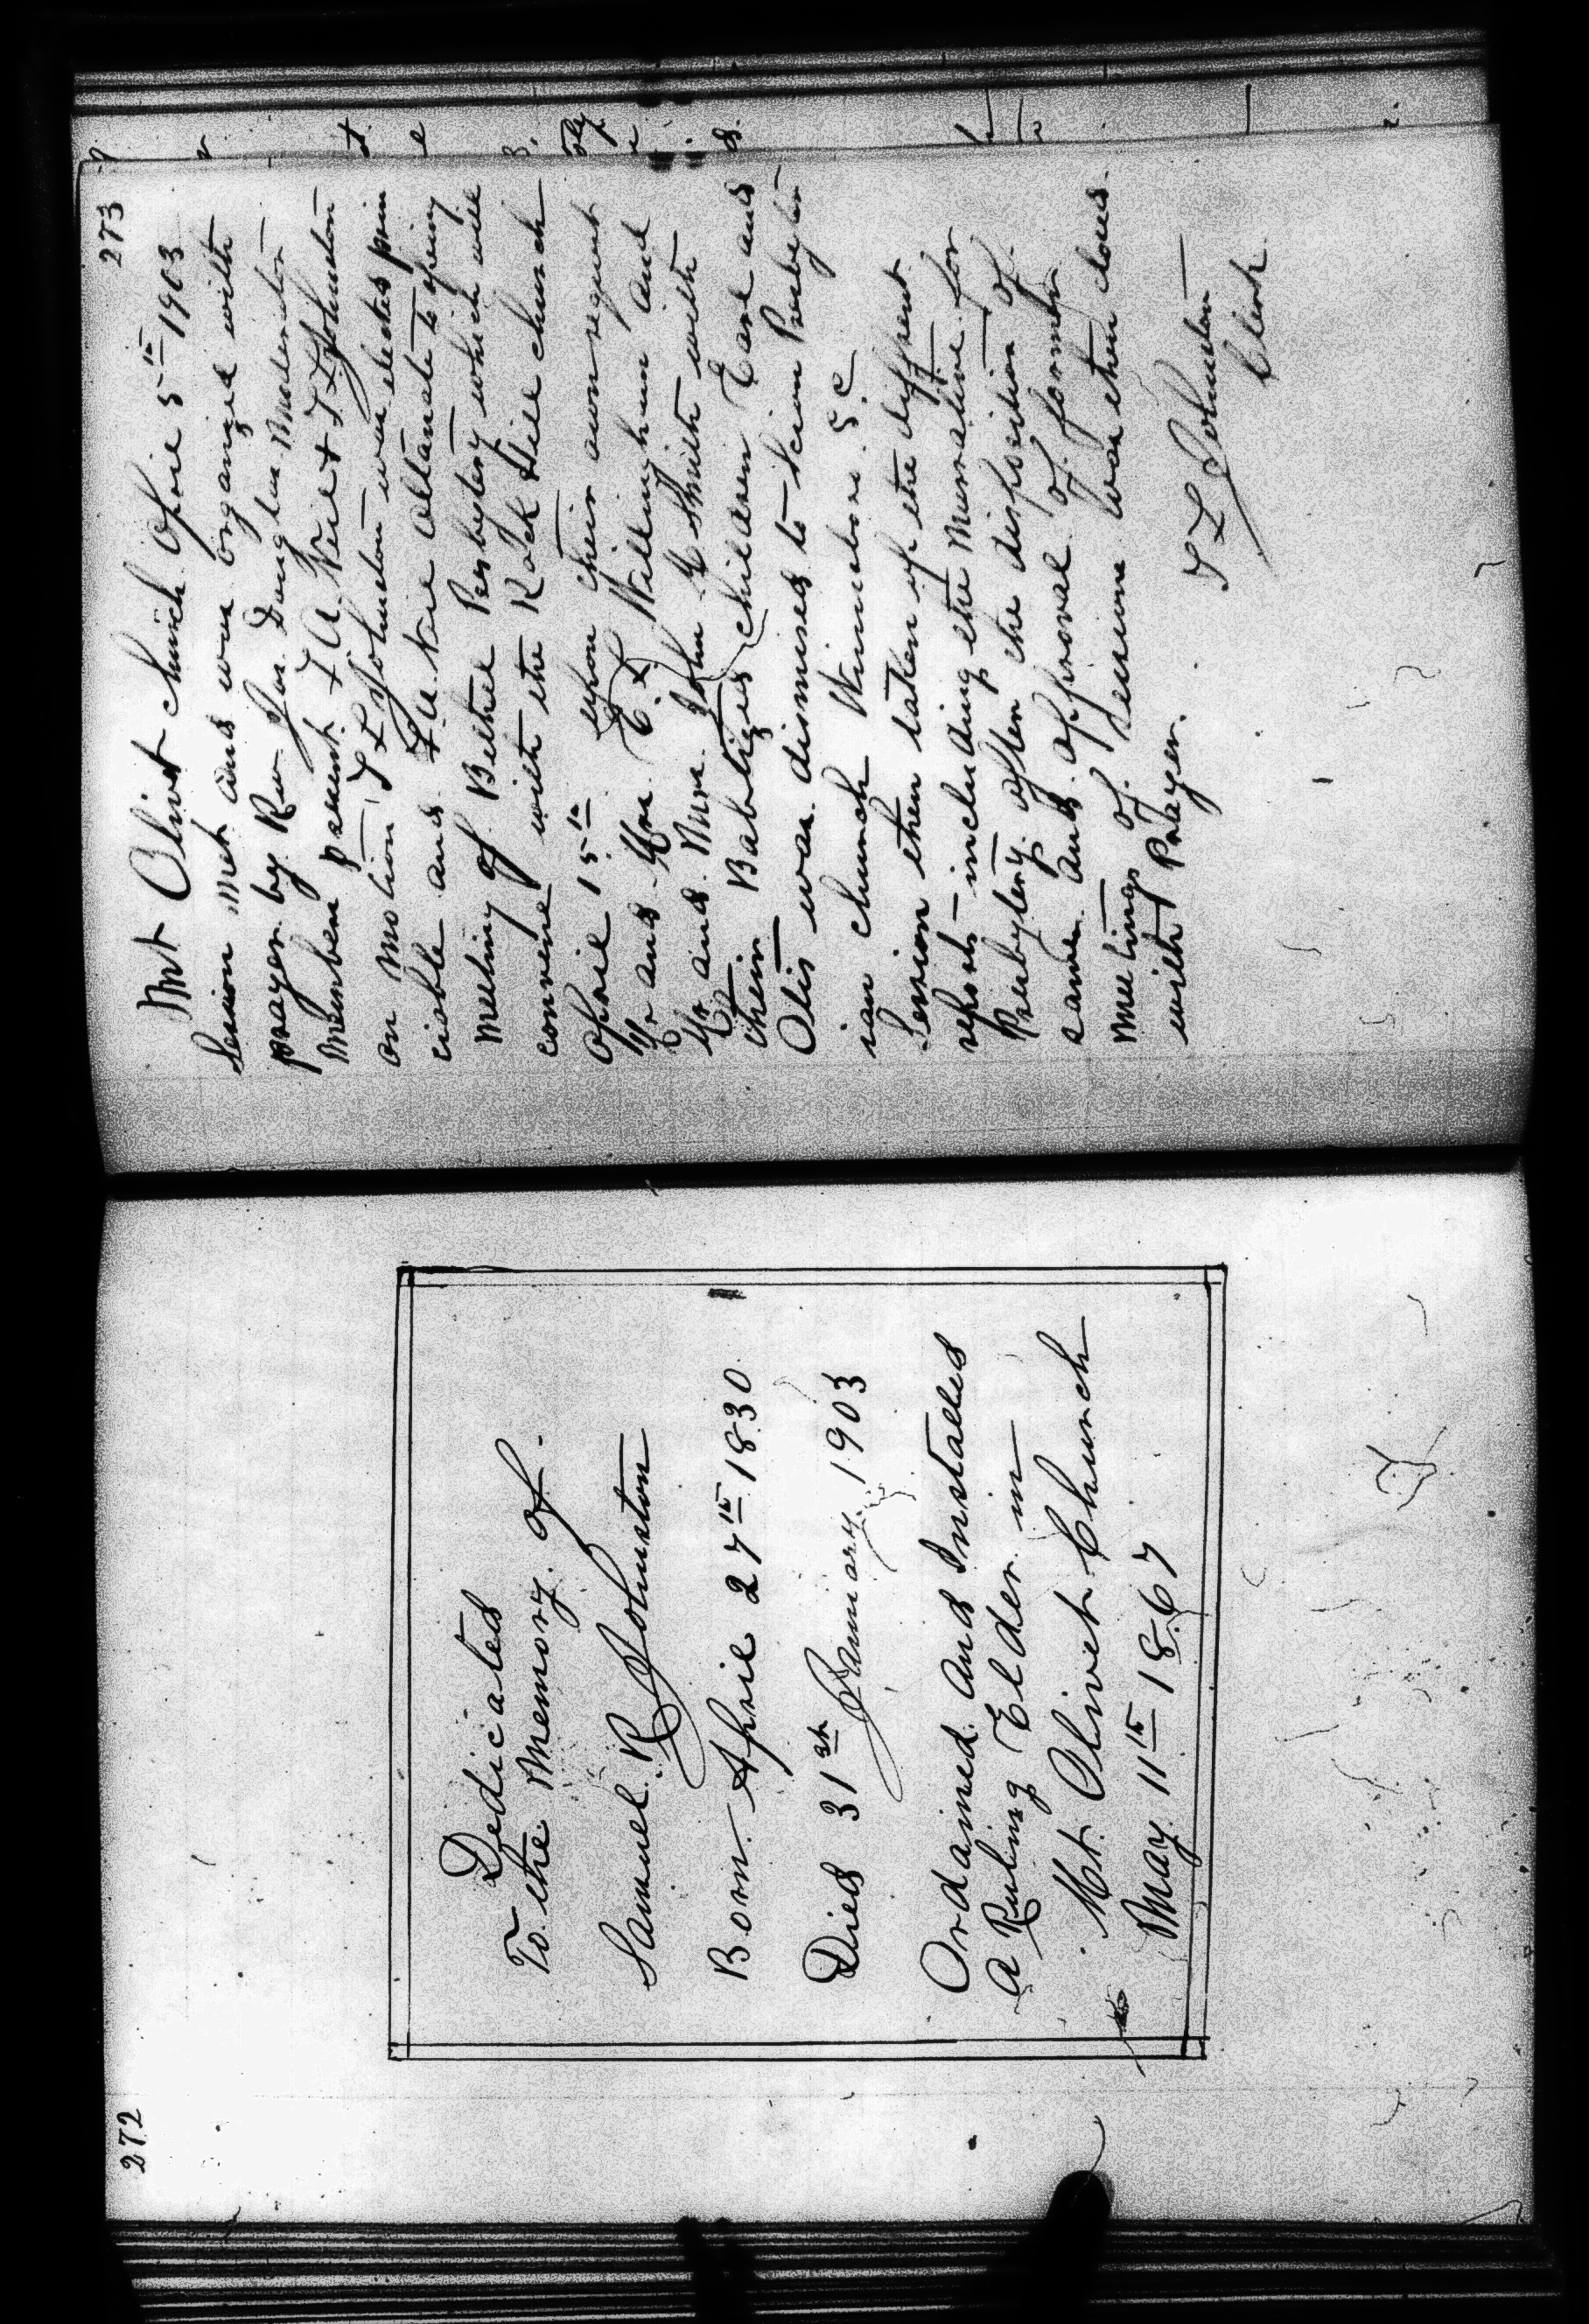 272
Dedicated
To the Memory of
Samuel R Johnston
Born April 27th 1830
Died 31st January 1903
Ordained and Installed
a Ruling Elder in
Mt Olivet Church
May 11th 1867
273
Mt Olivet church April 5th 1903
Session met and was organized with
prayer by Rev Jas Douglas Moderator
Members present T A Neil & T L Johnston
on motion T L Johnston was elected prin
ciable and T A Neil alternate to spring
meeting of Bethel Presbytery which will
convene with the Rock Hill church
April 15th upon their own request
Mr and Mrs E L Willingham and
Mr and Mrs John G Smith with
their Babtized children Earl and
Otis was dismissed to Scion Presbyter
ian church Winnsboro S. C
Session then taken up the different
reports including the Narative for
Presbytery after the disposition of
same and approval of former
meetings of session was then closed
with Prayer.
T L Johnston
Clerk